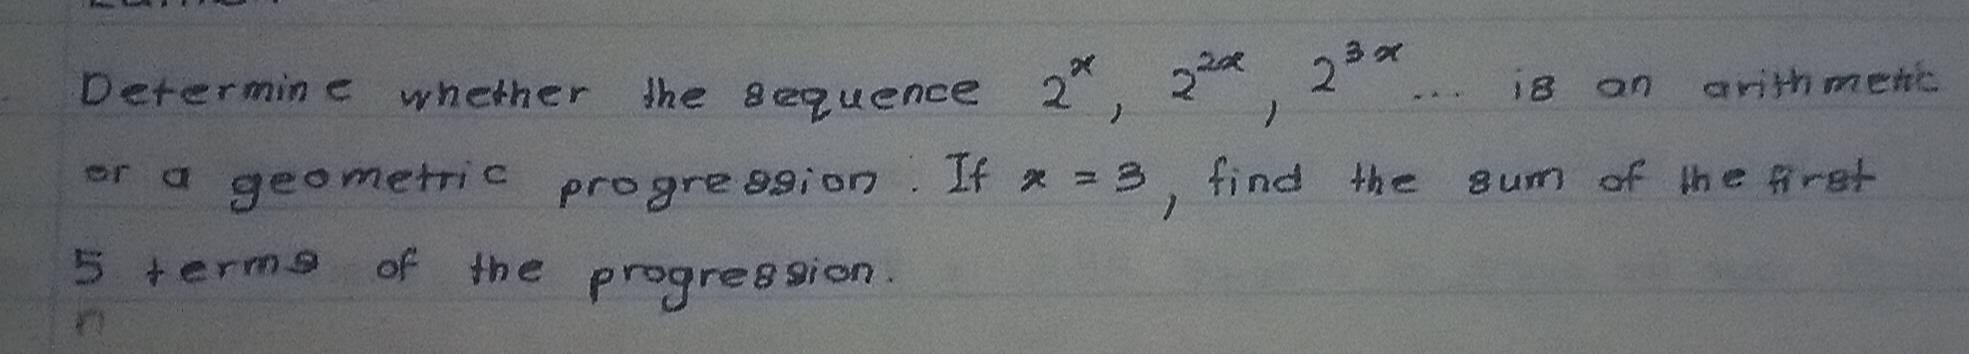 Determine whether the sequence 2^x, 2^2x, 2^3x ... is an arithmetic
or a geometric progression. If x = 3, find the sum of the first
5 terms of the progression.
n